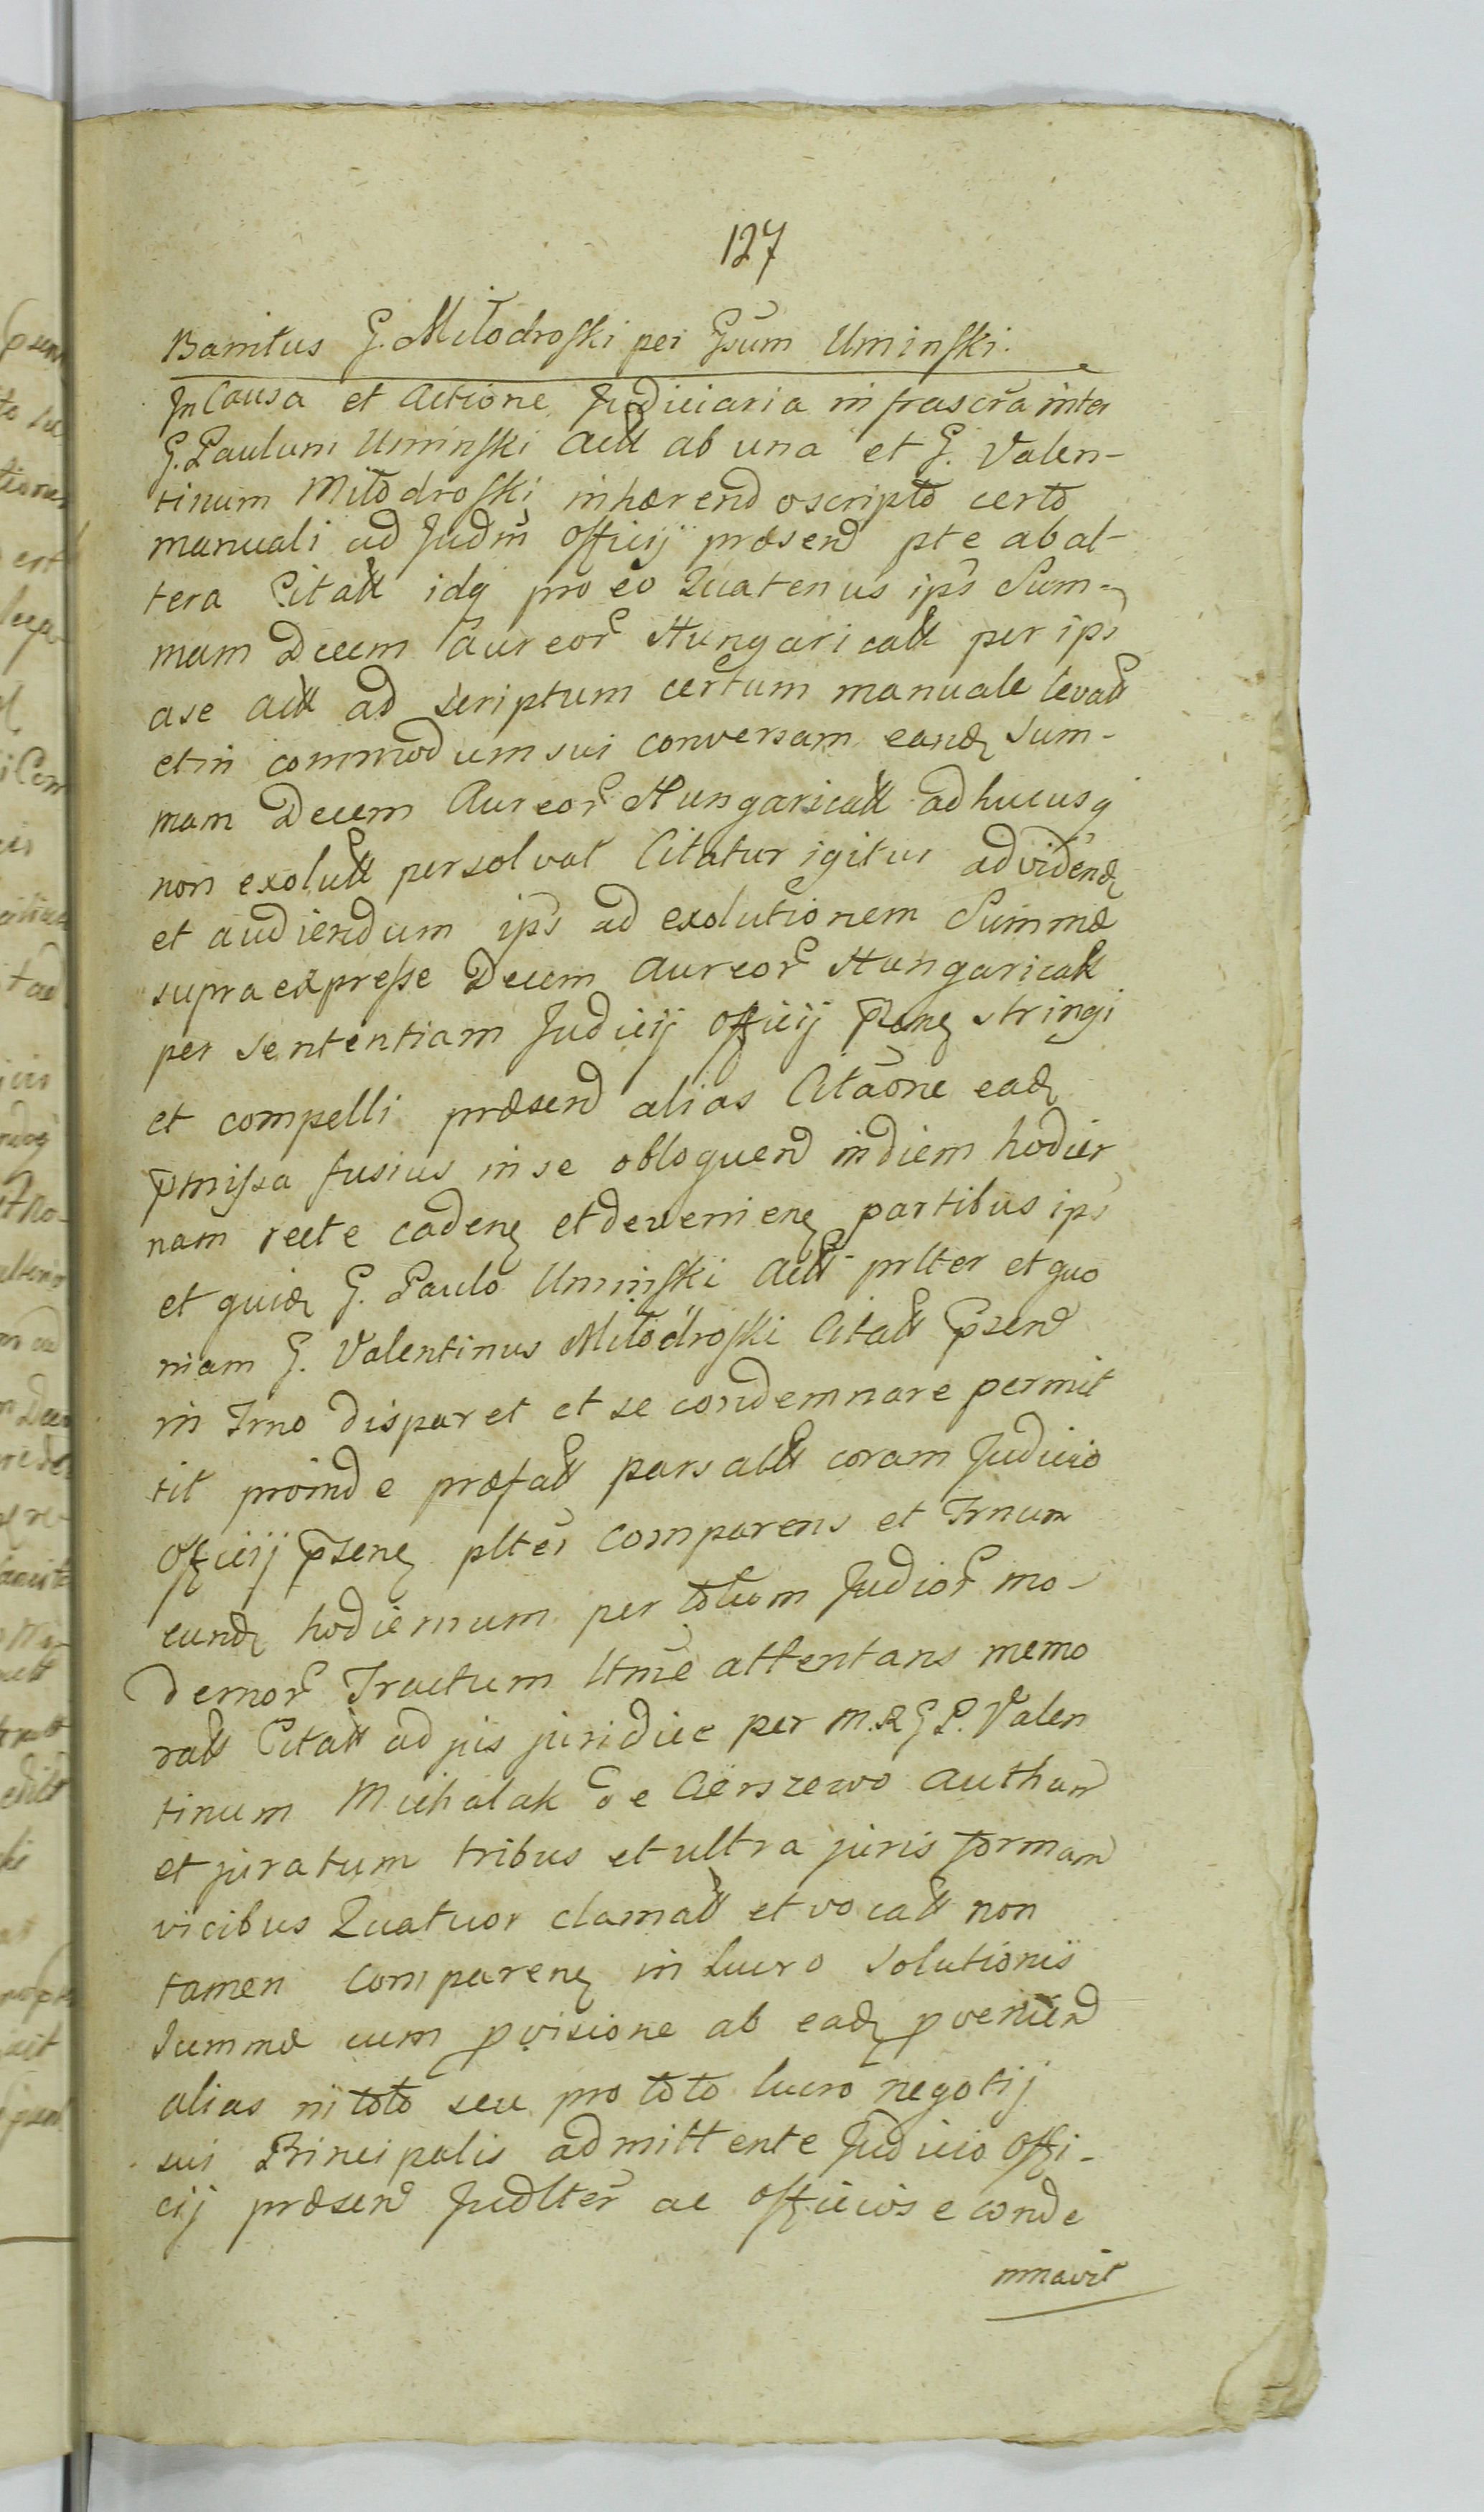 127
Banitus G. Miłodroski per Gsum Uminski.
In Causa et Actione Judiciaria infrascra inter
G. Paulum Uminski Actt ab una et G. Valen-
tinum Miłodroski inhærend oscripto certo
manuali ad Judm Officij præsend pte ab al-
tera Citatt idq pro eo Quatenus ips Sum-
mam Decem Aureor Hungaricatt per ips
ase actt ad scriptum certum manuale levatt
et in commodum sui conversam eand sum-
mam Decem Aureor Hungaricatt adhucusq
non exolutt persolvat Citatur igitur ad vidend
et audiendum ips ad exolutionem Summæ
supra expresse Decem Aureor Hungaricatt
per sententiam Judicij Officij psens stringi
et compelli præsend alias Citaone ead
pmissa fusius in se obloquend in diem hodier
nam recte caden et devenien partibus ips
et quid G. Paulo Uminski Actt prlter et quo
niam G. Valentinus Miłodroski Citatt psend
in Trno disparet et se condemnare permit
tit proinde præfatt pars actt coram Judicio
Officij psen plter comparens et Trnum
eund hodiernum per totum Judior mo-
dernor Tractum ltme attentans memo
ratt Citatt ad jus juridice per M.R G P. Valen
tinum Michalak de Cerszewo Authan
et juratum tribus et ultra juris forman
vicibus Quatuor clamatt et vocatt non
tamen comparen in Lucro solutionis
summæ cum pvisione ab ead pveniend
alias in toto seu pro toto lucro negotij
sui Principalis admittente Judicio Offi-
cij præsend Judlter ac officiose conde
mnavit